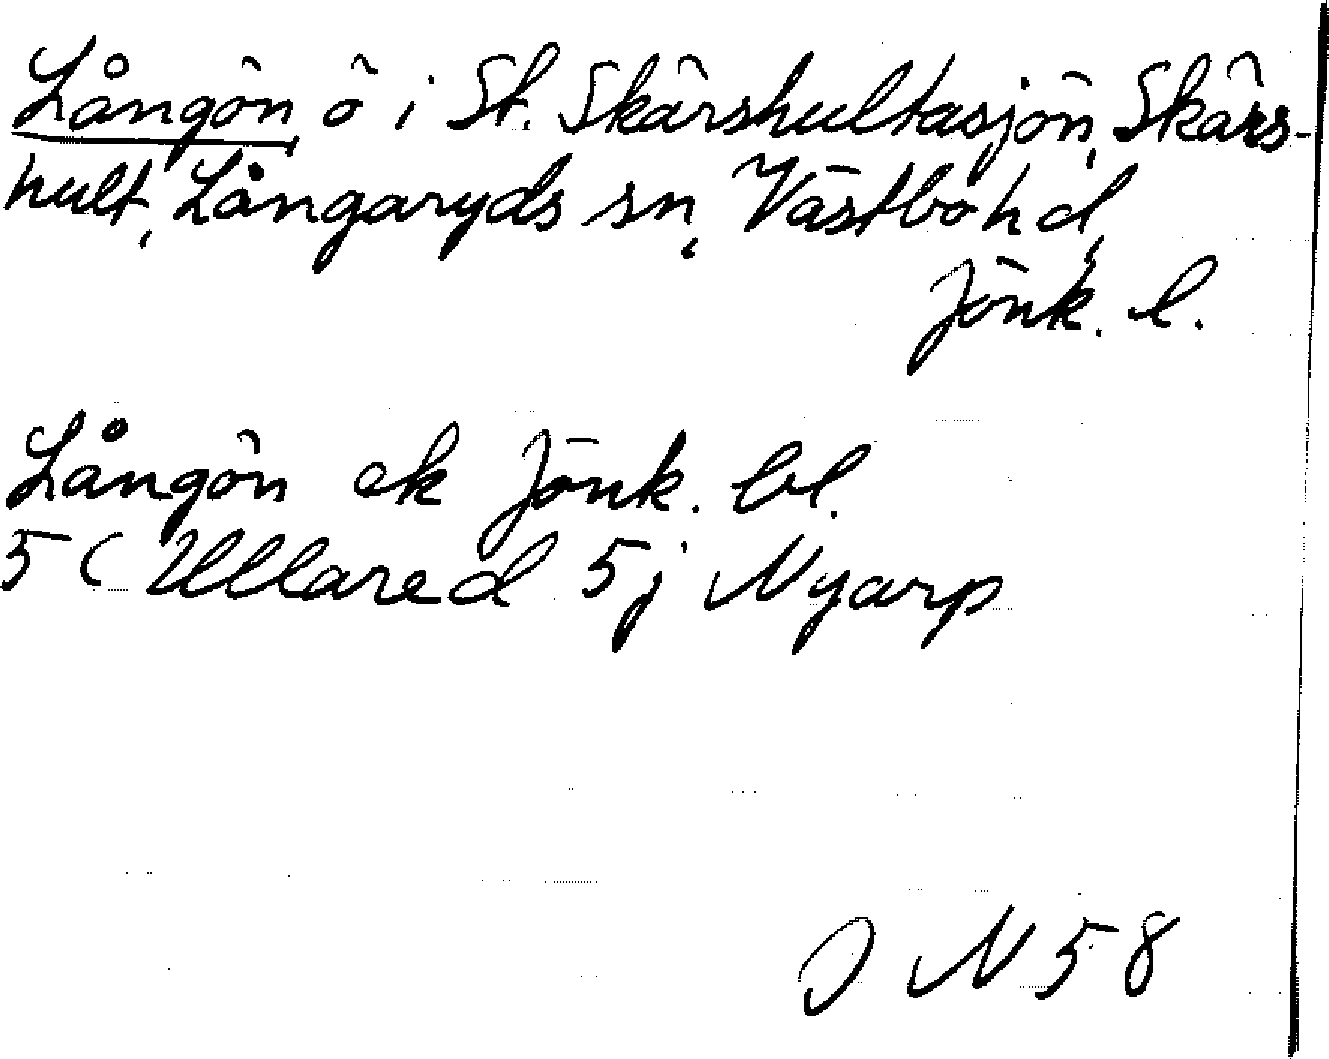 Långön, ö i St. Skärshultasjön, Skärs-
hult, Långaryds sn, Västbo hd,
Jönk. l.
Långön ek Jönk. bl.
5 C Ullared 5 j Nyarp
J N 58